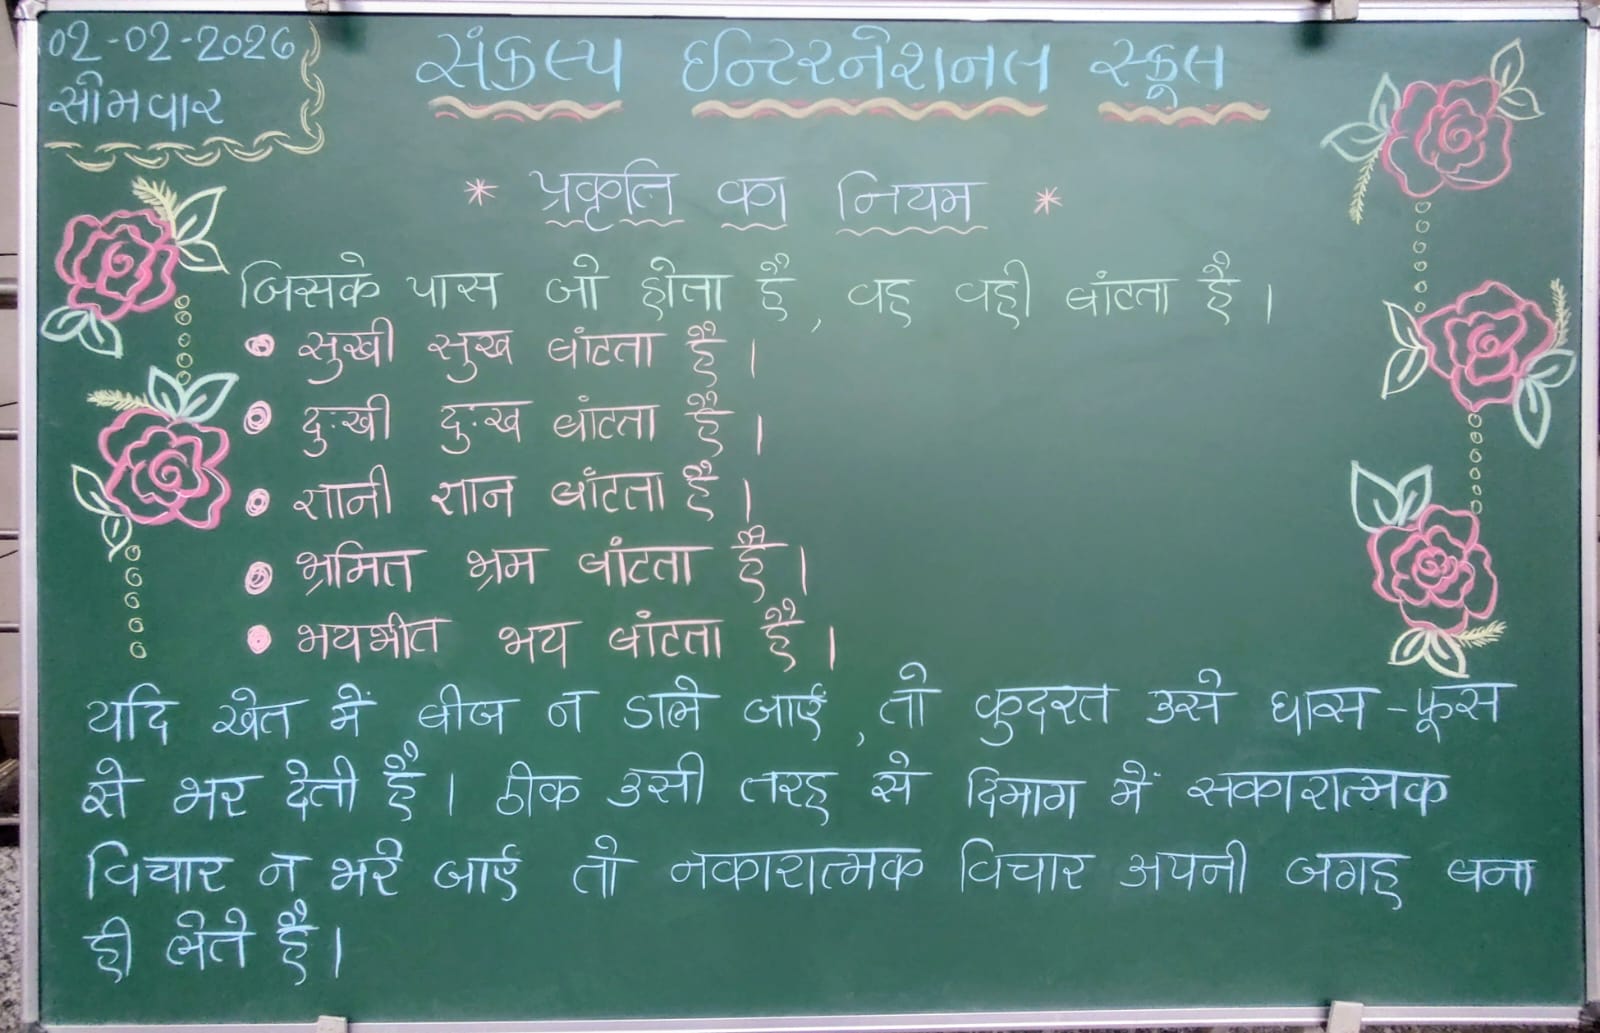 02-02-2026
सोमवार
संकल्प इन्टरनेशनल स्कूल
* प्रकृति का नियम *
जिसके पास जो होता है, वह वही बांटता है।
• सुखी सुख बांटता है।
• दुःखी दुःख बांटता है।
• ज्ञानी ज्ञान बांटता है।
• भ्रमित भ्रम बांटता है।
• भयभीत भय बांटता है।
यदि खेत में बीज न डाले जाएँ, तो कुदरत उसे घास-फूस
से भर देती है। ठीक उसी तरह से दिमाग में सकारात्मक
विचार न भरे जाएँ तो नकारात्मक विचार अपनी जगह बना
ही लेते है।